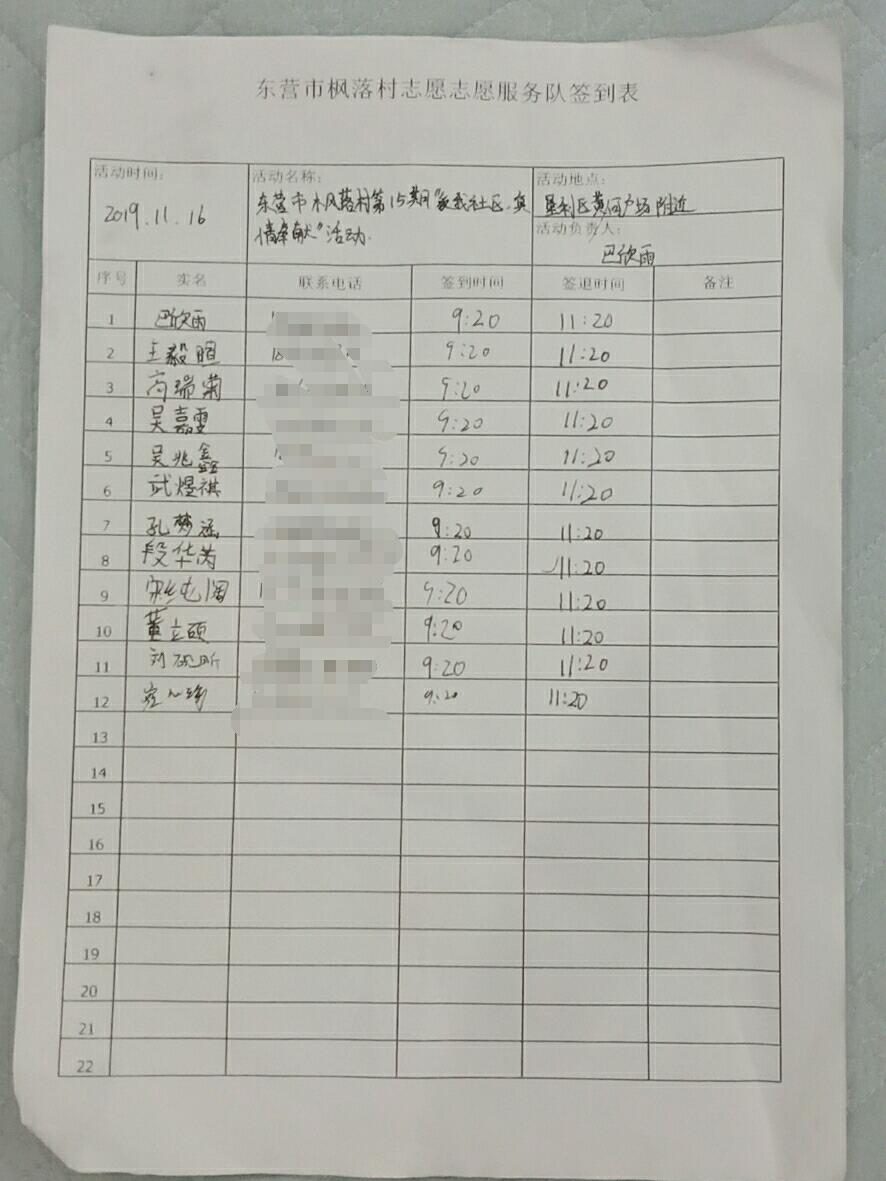 东营市枫落村志愿志愿服务队签到表
活动时间: 活动名称: 活动地点:
2019.11.16 东营市枫落村第15期"家我社区,真 垦利区黄河广场附近
情奉献"活动. 活动负责人:
巴欣雨
序号 实名 联系电话 签到时间 签退时间 备注
1 巴欣雨 9:20 11:20
2 王毅暄 9:20 11:20
3 高瑞菊 9:20 11:20
4 吴嘉雯 9:20 11:20
5 吴兆鑫 9:20 11:20
6 武煜祺 9:20 11:20
7 孔梦涵 9:20 11:20
8 段华芮 9:20 11:20
9 9:20 11:20
10 董立硕 9:20 11:20
11 刘砚昕 9:20 11:20
12 9:20 11:20
13
14
15
16
17
18
19
20
21
22